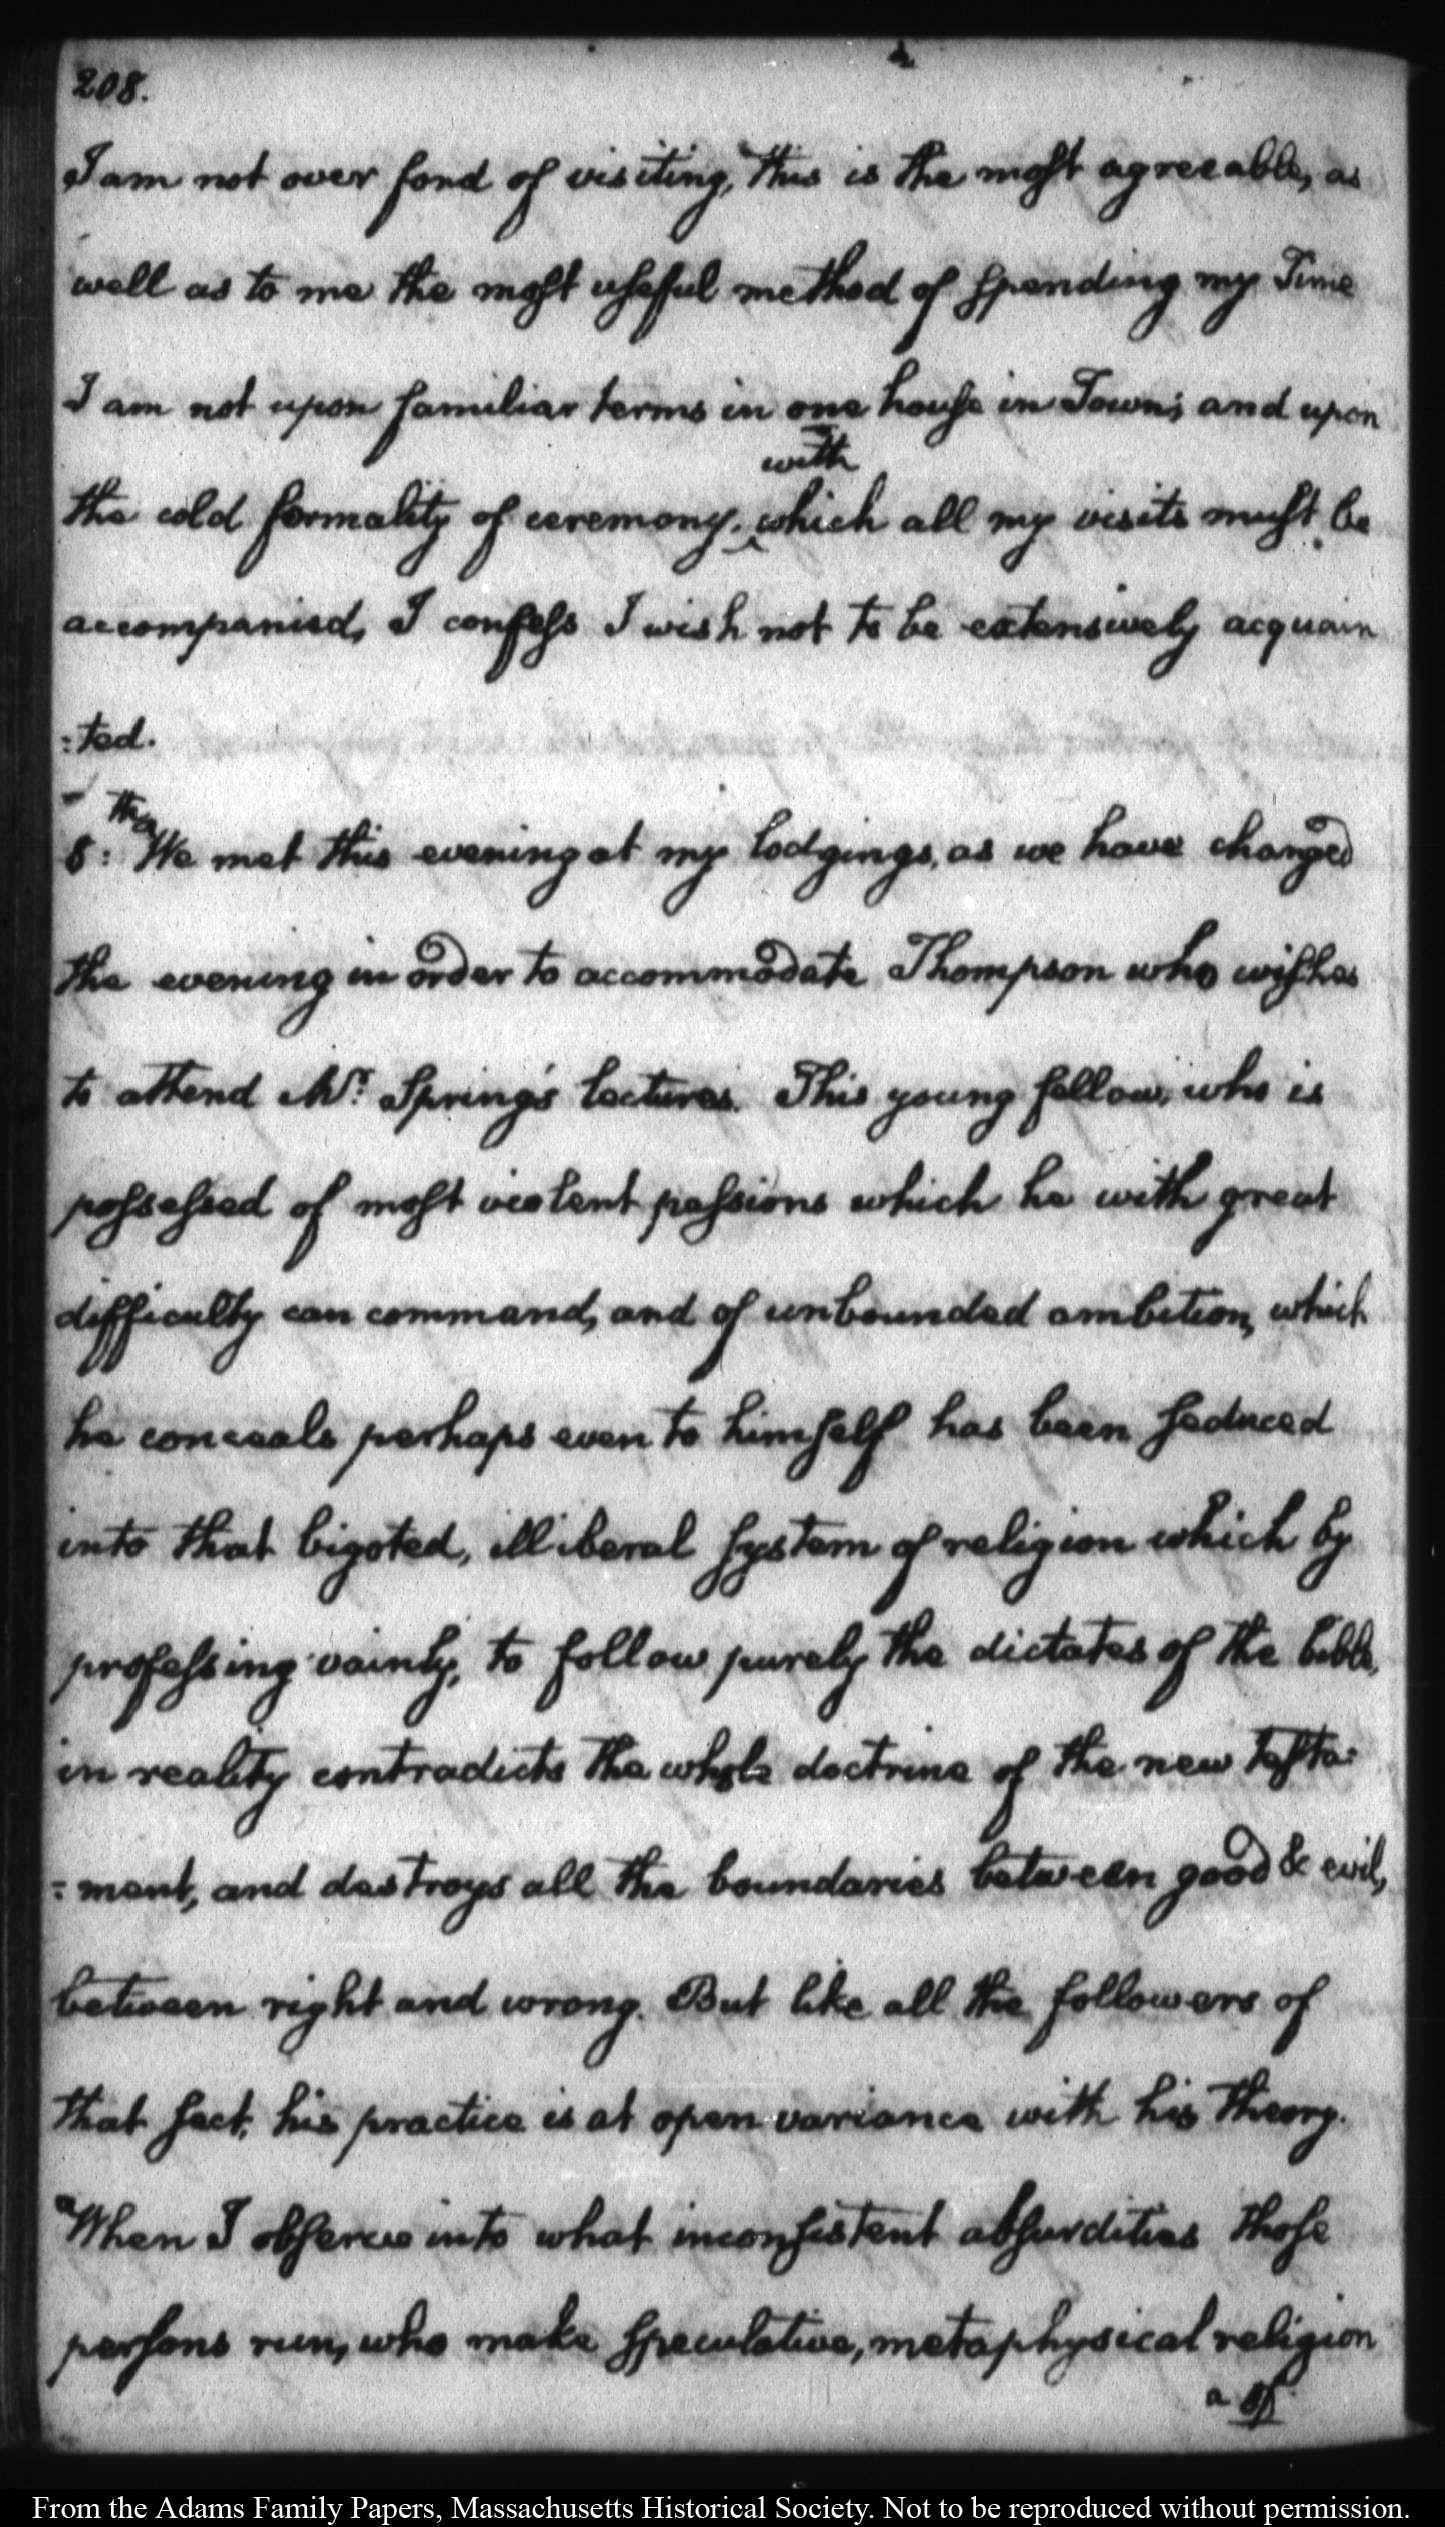 208.
I am not over fond of visiting, this is the most agreeable, as
well as to me the most useful method of spending my Time
I am not upon familiar terms in one house in Town; and upon
with
the cold formality of ceremony, ‸ which all my visits must be
accompanied, I confess I wish not to be extensively acquain
:ted.
8:th We met this evening at my lodgings, as we have changed
the evening in order to accommodate Thompson who wishes
to attend Mr. Spring's lectures. This young fellow, who is
possessed of most violent passions which he with great
difficulty can command, and of unbounded ambition, which
he conceals perhaps even to himself has been seduced
into that bigoted, illiberal system of religion which by
professing vainly, to follow purely the dictates of the bible,
in reality contradicts the whole doctrine of the new testa:
:ment, and destroys all the boundaries between good & evil,
between right and wrong. But like all the followers of
that sect, his practice is at open variance with his theory.
When I observe into what inconsistent absurdities those
persons run, who make speculative, metaphysical religion
a
From the Adams Family Papers, Massachusetts Historical Society. Not to be reproduced without permission.